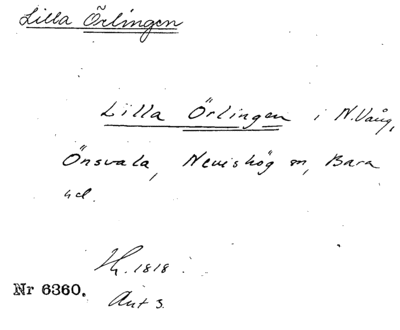 Lilla Örlingen
Lilla Örlingen i N.Vång,
Önsvala, Nevishög sn, Bara
hd.
Hy. 1818
Nr 6360.
Akt 3.